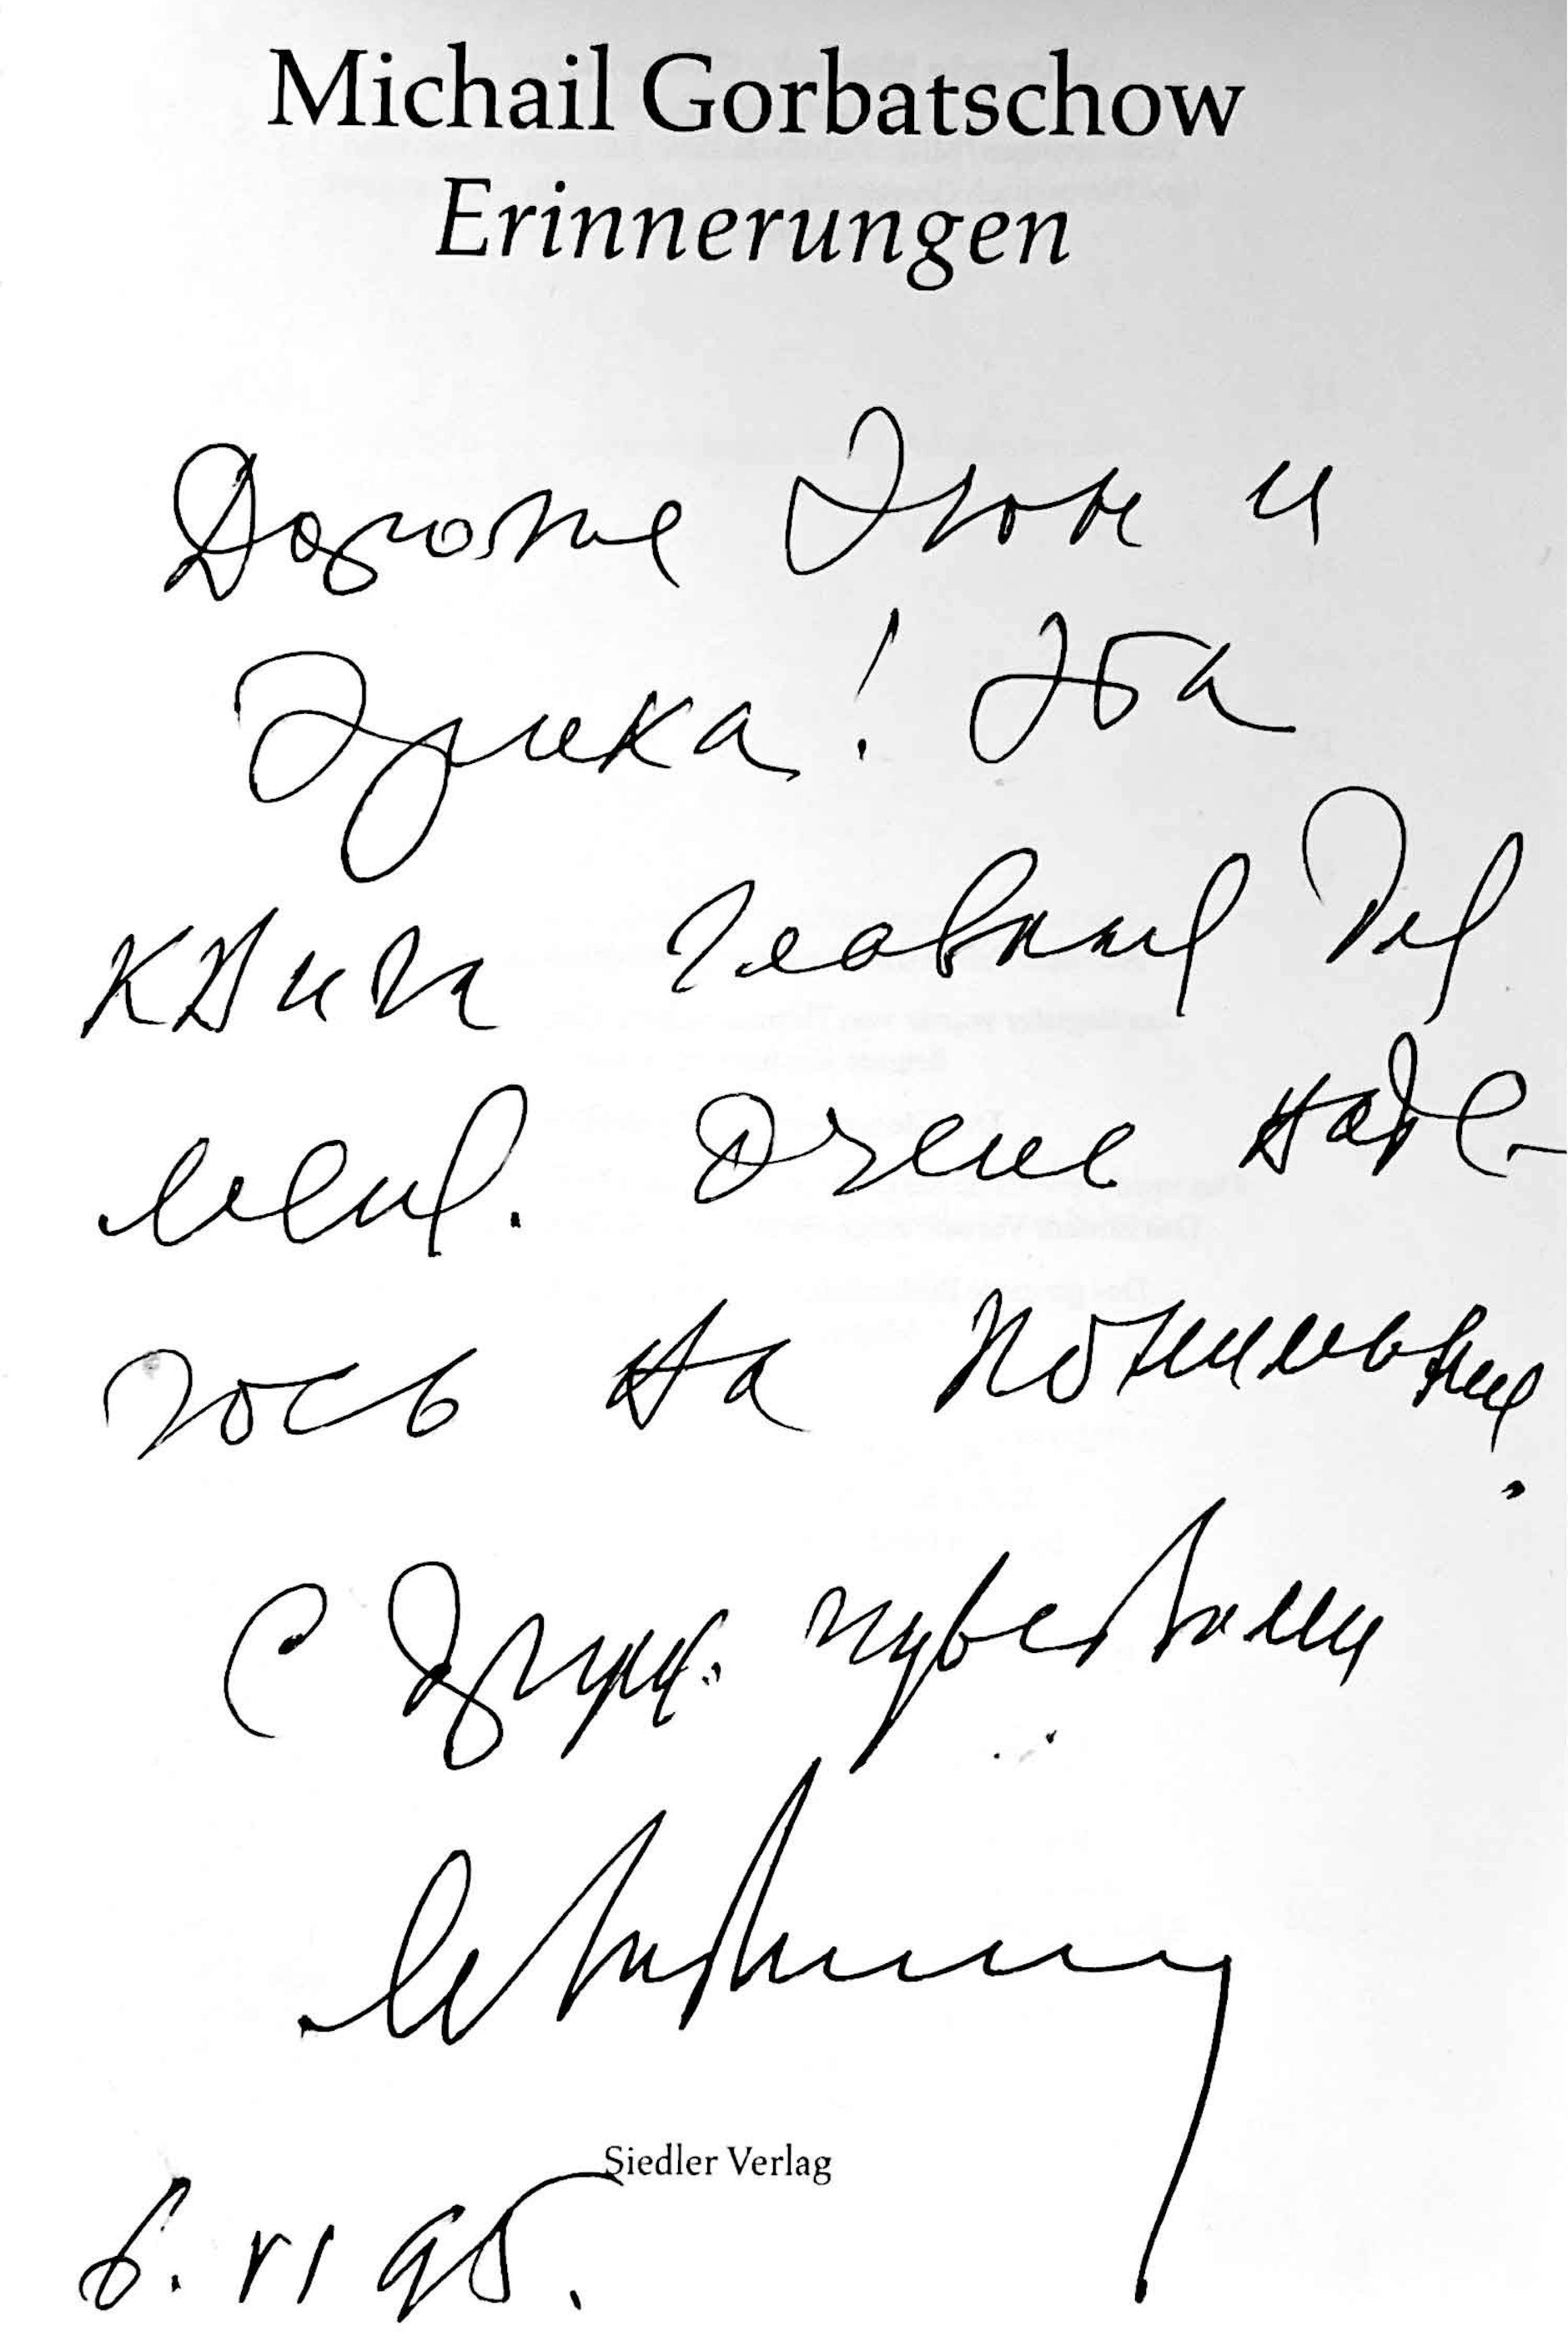 Michail Gorbatschow
Erinnerungen
Дорогие Эгон и
Эрика! Эта
книга главная для
меня. Очень наде-
юсь на понимание.
С друж. чувствами
Siedler Verlag
6. VI 95.